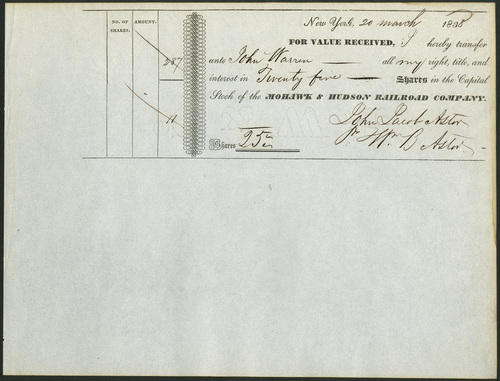 NO. OF SHARES. AMOUNT.
New York, 20 march 1838
FOR VALUE RECEIVED, I hereby transfer
287 unto John Warren all my right, title, and
interest in Twenty five Shares in the Capital
Stock of the MOHAWK & HUDSON RAILROAD COMPANY.
11 John Jacob Astor
Shares 25 Wm B Astor